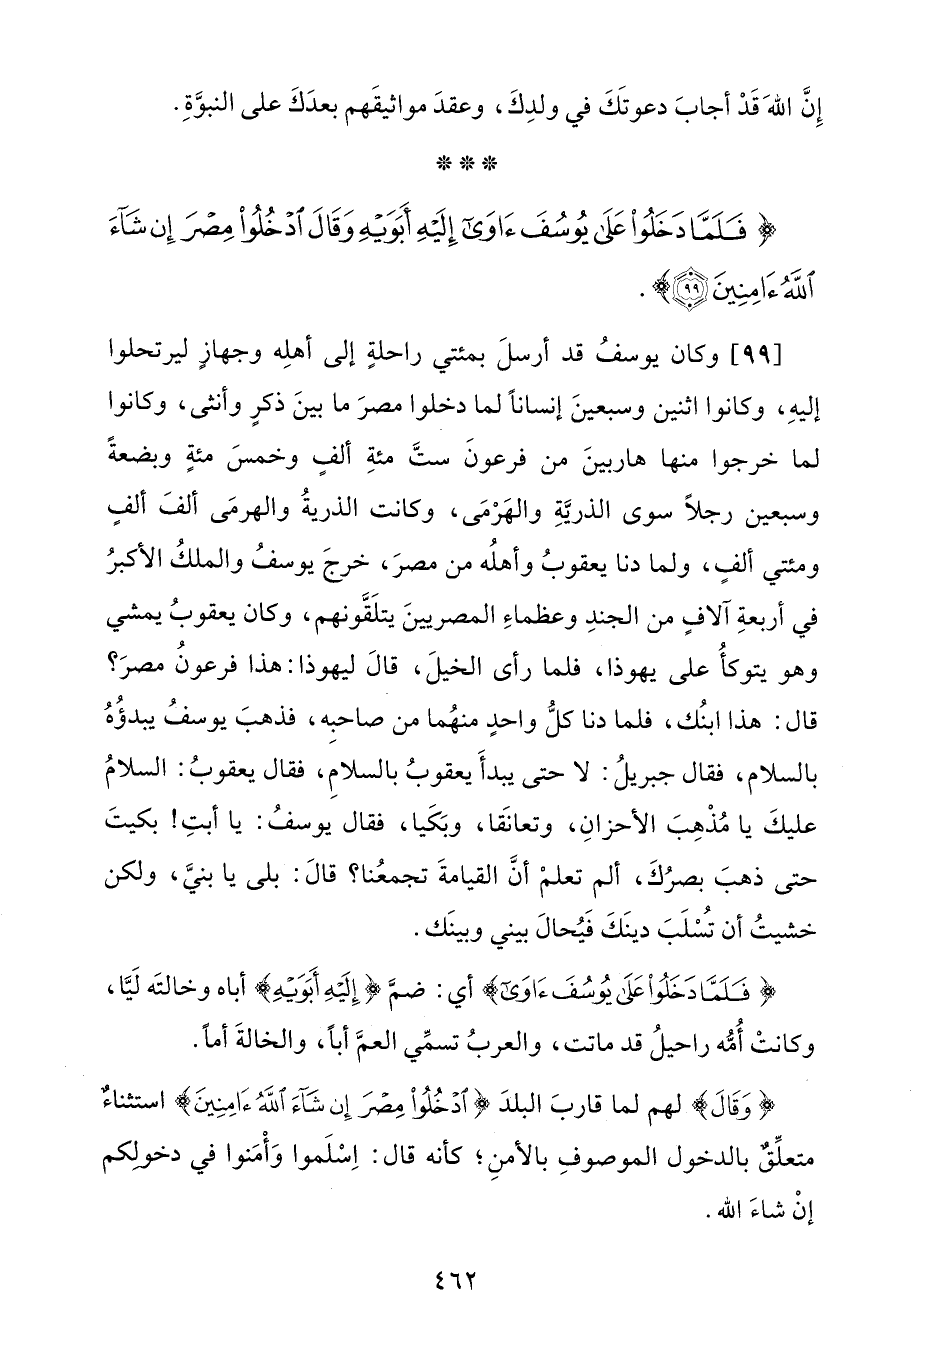 إِنَّ اللهَ قَدْ أجابَ دعوتَكَ في ولدِكَ، وعقدَ مواثيقَهم بعدَكَ على النبوَّةِ.
* * *
﴿ فَلَمَّا دَخَلُوا۟ عَلَىٰ يُوسُفَ ءَاوَىٰٓ إِلَيْهِ أَبَوَيْهِ وَقَالَ ٱدْخُلُوا۟ مِصْرَ إِن شَآءَ
ٱللَّهُ ءَامِنِينَ ٩٩﴾ .
[٩٩] وكان يوسفُ قد أرسلَ بمئتي راحلةٍ إلى أهلِه وجهازٍ ليرتحلوا
إليهِ، وكانوا اثنين وسبعينَ إنساناً لما دخلوا مصرَ ما بينَ ذكرٍ وأنثى، وكانوا
لما خرجوا منها هاربينَ من فرعونَ ستَّ مئةِ ألفٍ وخمسَ مئةٍ وبضعةً
وسبعين رجلاً سوى الذريَّةِ والهَرْمَى، وكانت الذريةُ والهرمَى ألفَ ألفٍ
ومئتي ألفٍ، ولما دنا يعقوبُ وأهلُه من مصرَ، خرجَ يوسفُ والملكُ الأكبرُ
في أربعةِ آلافٍ من الجندِ وعظماءِ المصريينَ يتلَقَّونهم، وكان يعقوبُ يمشي
وهو يتوكأُ على يهوذا، فلما رأى الخيلَ، قالَ ليهوذا: هذا فرعونُ مصرَ؟
قال: هذا ابنُك، فلما دنا كلُّ واحدٍ منهُما من صاحبِه، فذهبَ يوسفُ يبدؤُهُ
بالسلامِ، فقال جبريلُ: لا حتى يبدأَ يعقوبُ بالسلامِ، فقال يعقوبُ: السلامُ
عليكَ يا مُذْهِبَ الأحزانِ، وتعانقَا، وبَكَيا، فقال يوسفُ: يا أبتِ! بكيتَ
حتى ذهبَ بصرُكَ، ألم تعلمْ أنَّ القيامةَ تجمعُنا؟ قالَ: بلى يا بنيَّ، ولكن
خشيتُ أن تُسْلَبَ دينَكَ فَيُحالَ بيني وبينَك.
﴿ فَلَمَّا دَخَلُوا۟ عَلَىٰ يُوسُفَ ءَاوَىٰٓ﴾ أي: ضمَّ ﴿ إِلَيْهِ أَبَوَيْهِ﴾ أباه وخالته لَيَّا،
وكانتْ أُمُّه راحيلُ قد ماتت، والعربُ تسمِّي العمَّ أباً، والخالةَ أماً.
﴿ وَقَالَ﴾ لهم لما قاربَ البلدَ ﴿ ٱدْخُلُوا۟ مِصْرَ إِن شَآءَ ٱللَّهُ ءَامِنِينَ﴾ استثناءٌ
متعلِّقٌ بالدخول الموصوفِ بالأمنِ؛ كأنه قال: اِسْلَموا وَأْمَنوا في دخولِكم
إنْ شاءَ الله .
٤٦٢